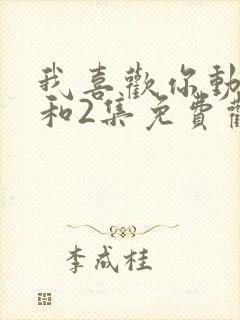 我喜歡你動
和2集免費
李成桂